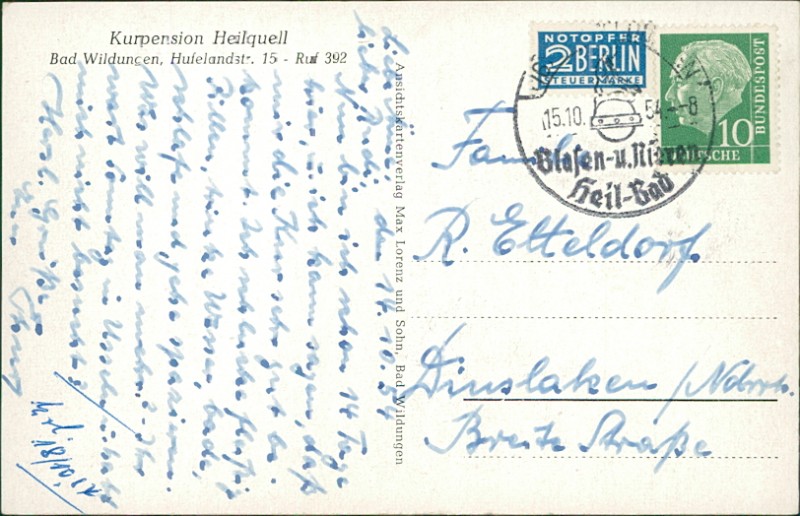 Kurpension Heilquell
Bad Wildungen, Hufelandstr. 15 - Ruf 392
Ansichtskartenverlag Max Lorenz und Sohn, Bad Wildungen
NOTOPFER
2 BERLIN
STEUERMARKE
15.10. 54.-8
Blasen-u. Nieren
Heil-Bad
10
DEUTSCHE
BUNDESPOST
Familie
R. Etteldorf
Dinslaken /Ndrrh.
Breite Straße
den 14.10.54
Nun bin ich schon 14 Tage
hier, u. ich kann sagen, daß
mir die Kur sehr gut be-
kommt. Ich schlucke fleißig
Pillen, trinke Wasser, bade,
schlafe und gehe spazieren.
Was will man mehr? Ihr
wart Sonntag in
mich nicht besucht?
Herzl. Grüße